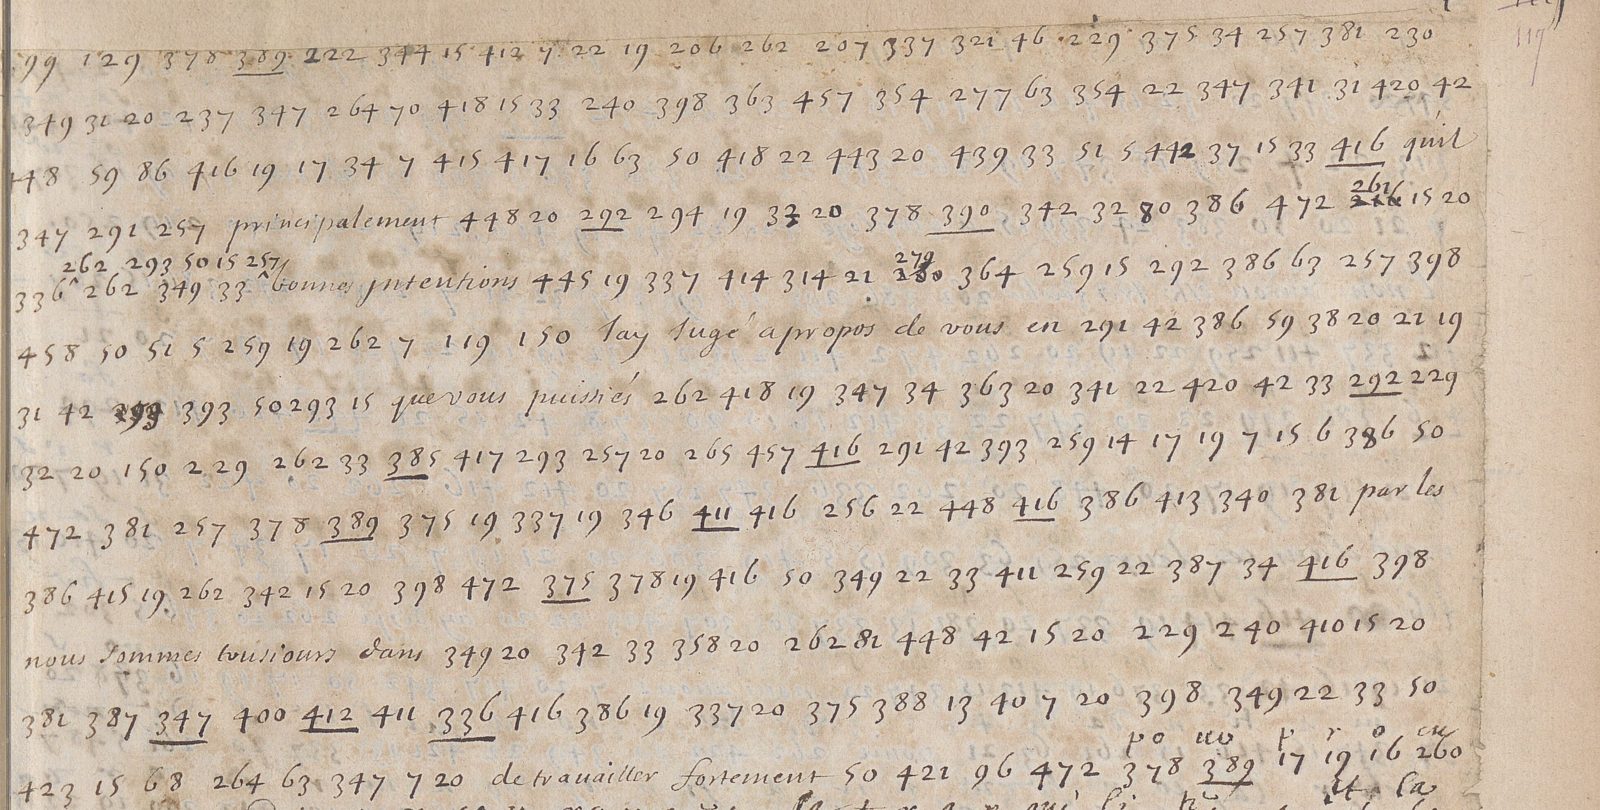 119
99 129 378 389 222 344 15 412 7 22 19 206 262 207 337 321 46 229 375 34 257 381 230
349 31 20 237 347 264 70 418 15 33 240 398 363 457 354 277 63 354 22 347 341 31 420 42
448 59 86 416 19 17 34 7 415 417 16 63 50 418 22 443 20 439 33 51 5 442 37 15 33 416 quil
347 291 257 principalement 448 20 292 294 19 32 20 378 390 342 32 80 386 472 261 15 20
262 293 50 15 257
336 262 349 33 bonnes jntentions 445 19 337 414 314 21 279 364 259 15 292 386 63 257 398
458 50 51 5 259 19 262 7 119 150 Jay Jugé apropos de vous en 291 42 386 59 38 20 21 19
31 42 393 50 293 15 que vous puissiés 262 418 19 347 34 363 20 341 22 420 42 33 292 229
32 20 150 229 262 33 385 417 293 257 20 265 457 416 291 42 393 259 14 17 19 7 15 6 386 50
472 381 257 378 389 375 19 337 19 346 411 416 256 22 448 416 386 413 340 381 par les
386 415 19 262 342 15 20 398 472 375 378 19 416 50 349 22 33 411 259 22 387 34 416 398
nous sommes tousiours dans 349 20 342 33 358 20 262 81 448 42 15 20 229 240 410 15 20
381 387 347 400 412 411 336 416 386 19 337 20 375 388 13 40 7 20 398 349 22 33 50
po uo p r o cu
423 15 68 264 63 347 7 20 de travailler fortement 50 421 96 472 378 389 17 19 16 260